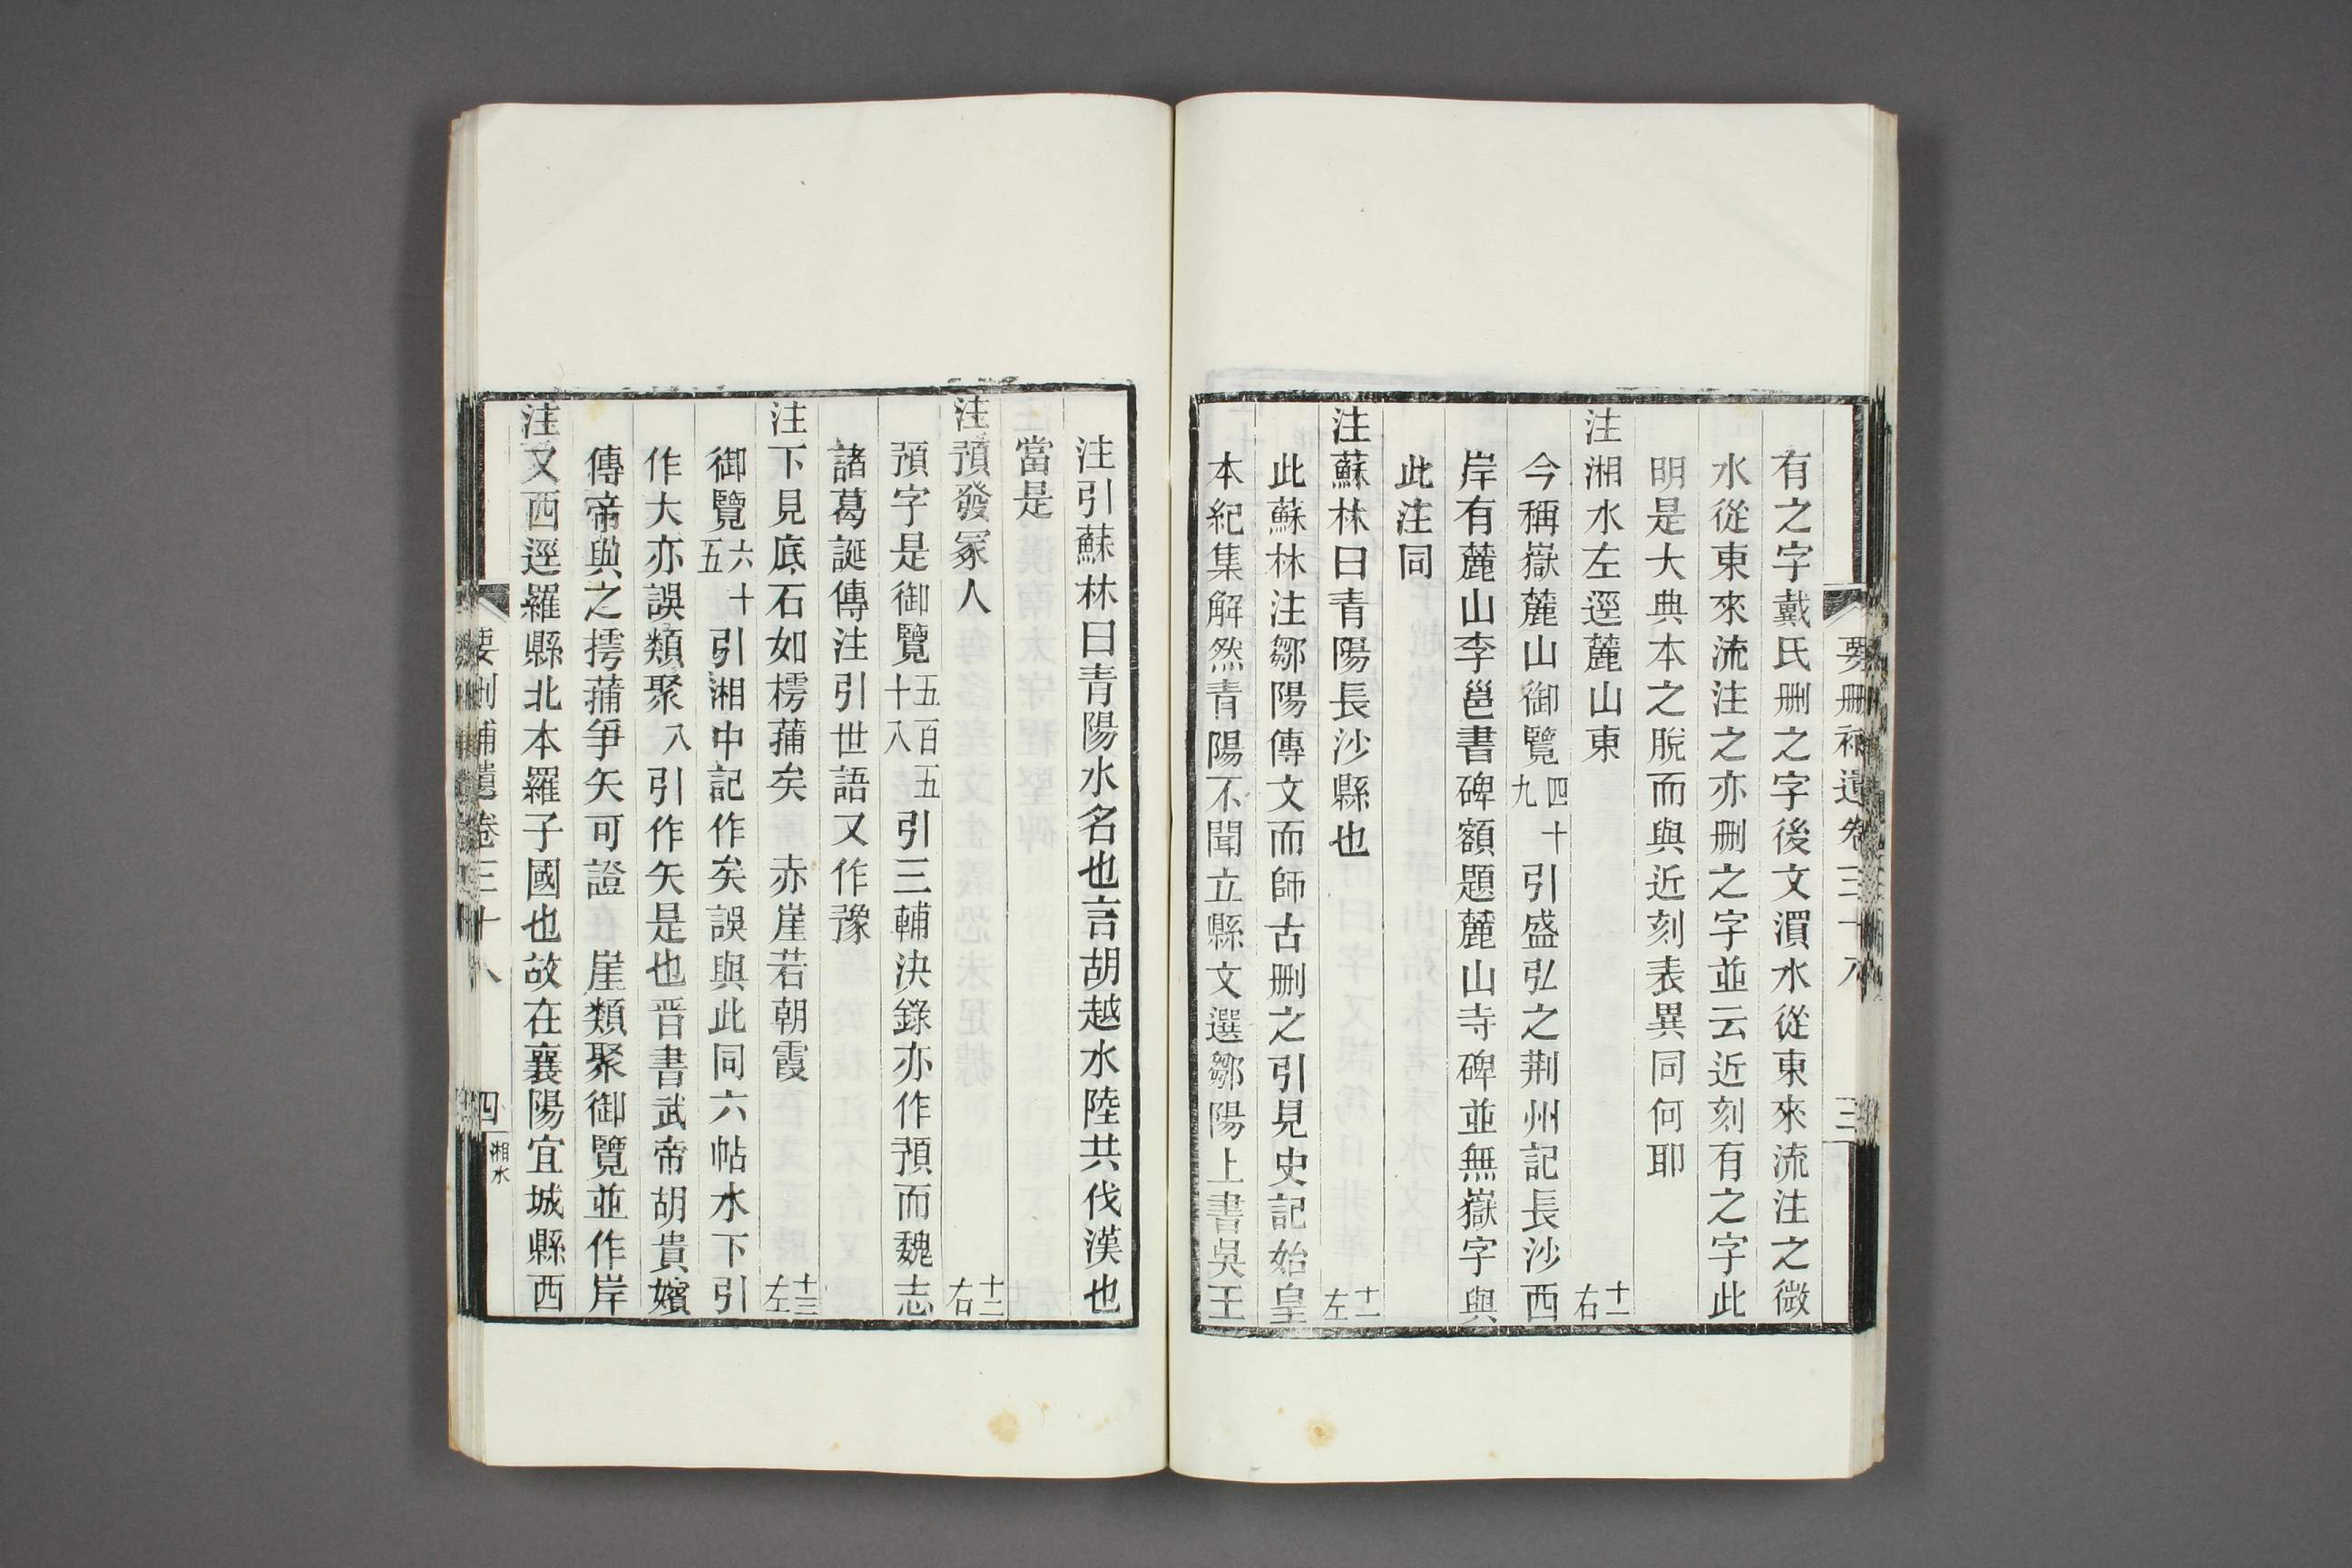 有之字戴氏刪之字後文溳水從東來流注之微
水從東來流注之亦刪之字並云近刻有之字此
明是大典本之脫而與近刻表異同何耶
注湘水左逕麓山東 十一右
今稱嶽麓山御覽四十九引盛弘之荆州記長沙西
岸有麓山李邕書碑額題麓山寺碑並無嶽字與
此注同
注蘇林曰青陽長沙縣也 十一左
此蘇林注鄒陽傳文而師古刪之引見史記始皇
本紀集解然青陽不聞立縣文選鄒陽上書吳王
要刪補遺卷三十八 三
注引蘇林曰青陽水名也言胡越水陸共伐漢也
當是
注預發冢人 十二右
預字是御覽五百五十八引三輔決錄亦作預而魏志
諸葛誕傳注引世語又作豫
注下見底石如樗蒱矣 赤崖若朝霞 十三左
御覽六十五引湘中記作矣誤與此同六帖水下引
作大亦誤類聚八引作矢是也晋書武帝胡貴嬪
傳帝與之摴蒱爭矢可證 崖類聚御覽並作岸
注又西逕羅縣北本羅子國也故在襄陽宜城縣西
要刪補遺卷三十八 四 湘水